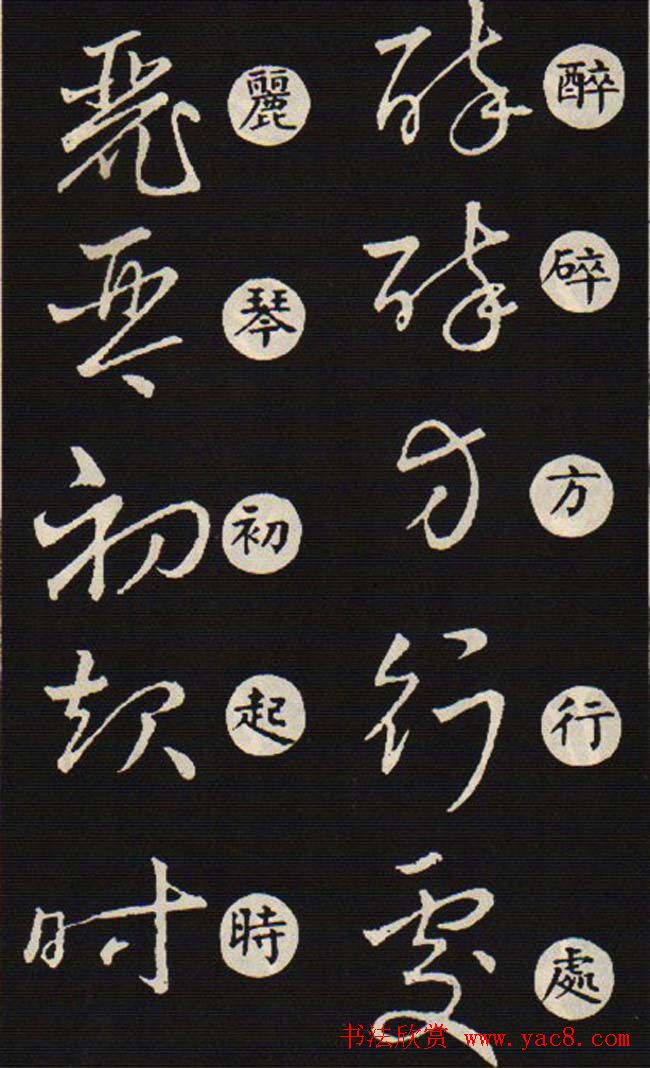 醉
碎
方
行
處
麗
琴
初
起
時
书法欣赏 www.yac8.com